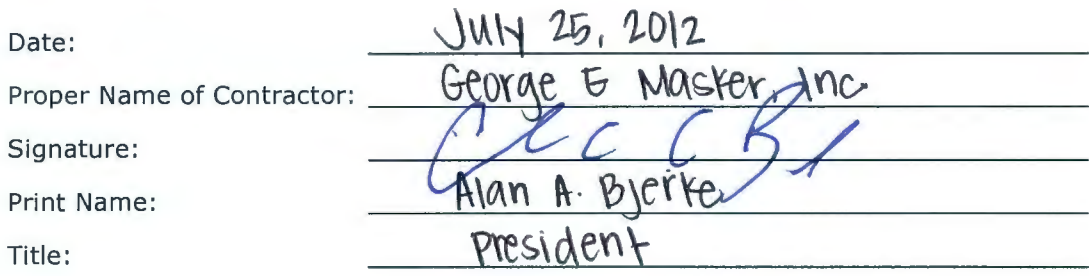 Date: July 25, 2012
Proper Name of Contractor: George E Masker, Inc.
Signature:
Print Name: Alan A. Bjerke
Title: President